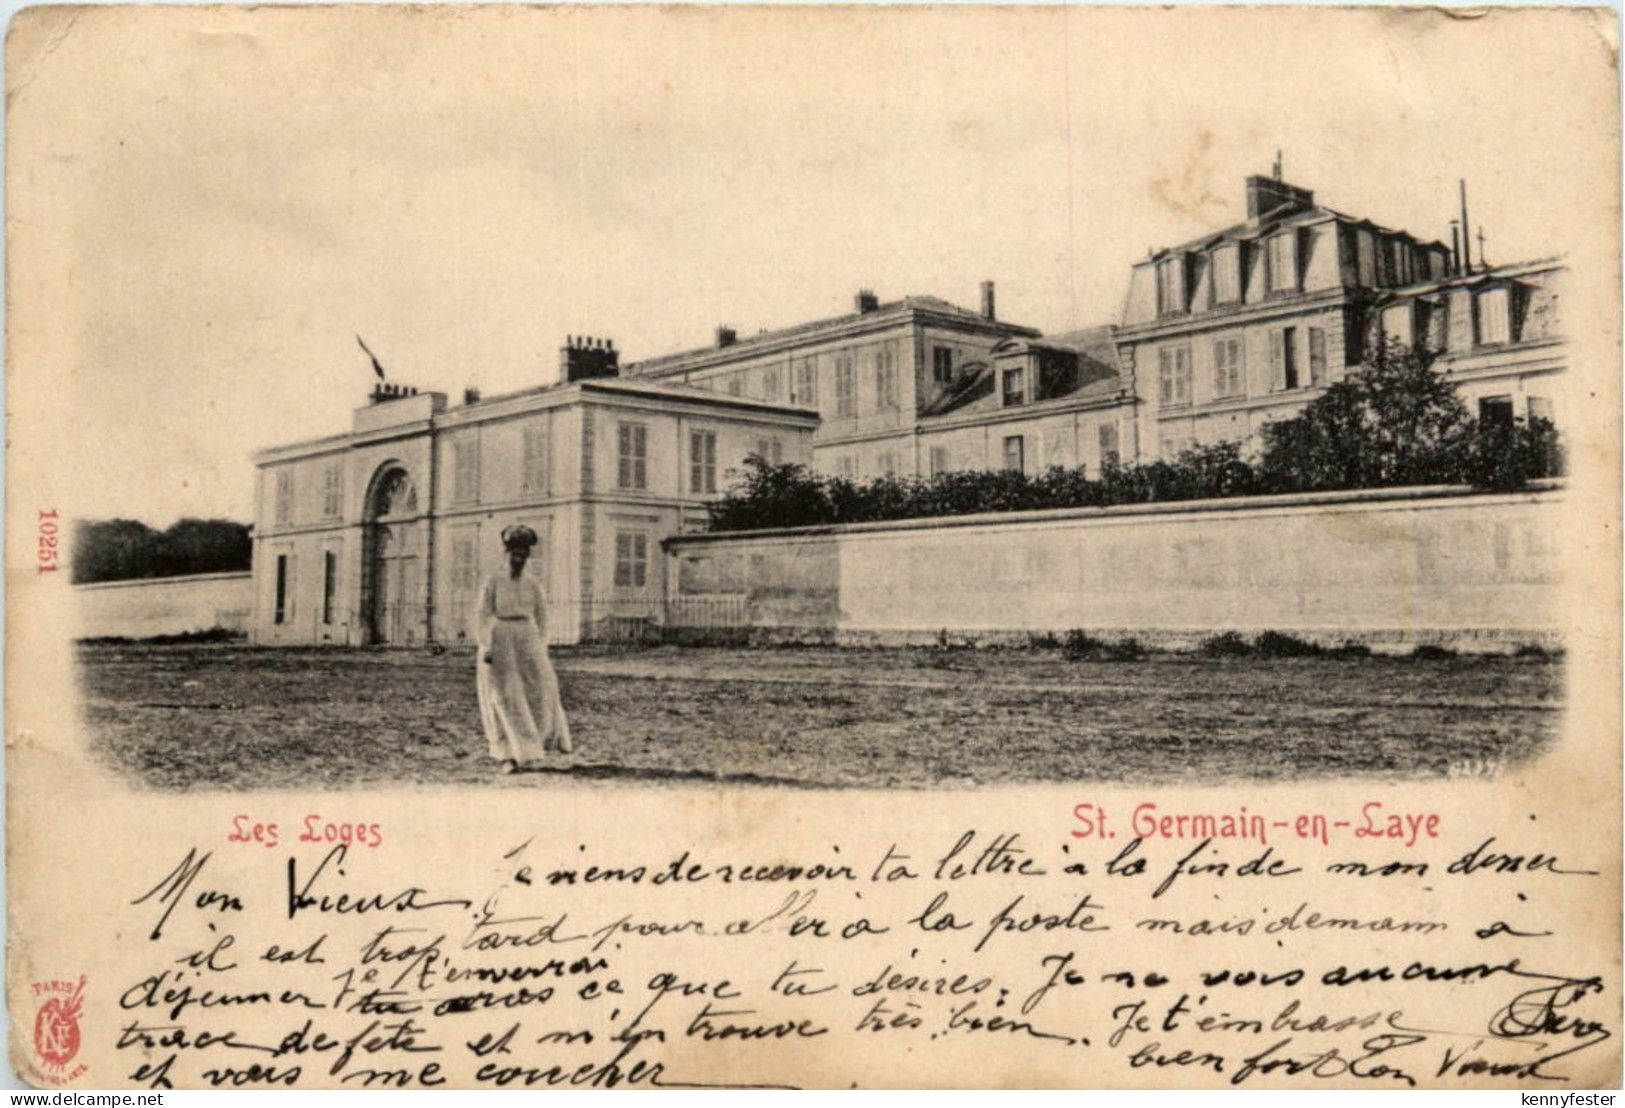 10251
Les Loges
St. Germain-en-Laye
Mon Vieux, Je viens de recevoir ta lettre à la fin de mon diner
il est trop tard pour aller à la poste mais demain à
déjeuner je t'enverrai ce que tu désires. Je ne vois aucune
trace de fete et m'en trouve très bien. Je t'embrasse
et vais me coucher bien fort Ton Vieux
PARIS
delcampe.net
kennyfester